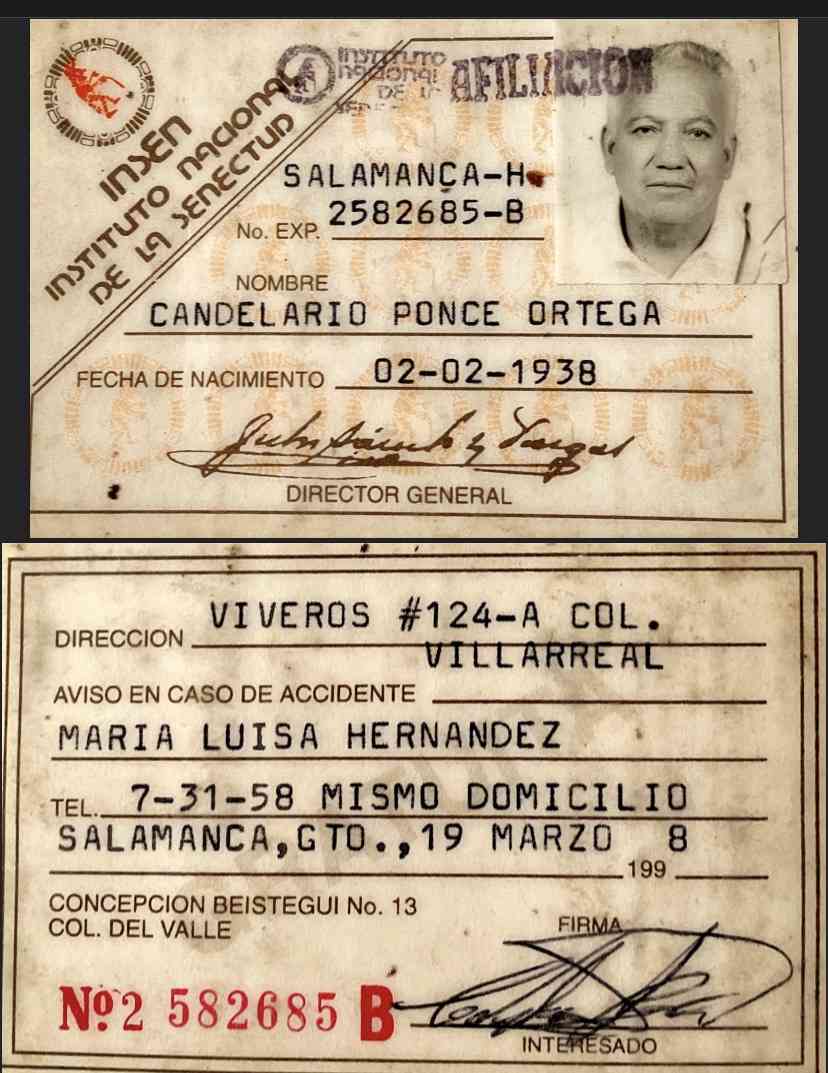 INSEN
INSTITUTO NACIONAL
DE LA SENECTUD
INSTITUTO
NACIONAL
DE LA
AFILIACION
SALAMANCA-H
No. EXP. 2582685-B
NOMBRE
CANDELARIO PONCE ORTEGA
FECHA DE NACIMIENTO 02-02-1938
DIRECTOR GENERAL
DIRECCION VIVEROS #124-A COL.
VILLARREAL
AVISO EN CASO DE ACCIDENTE
MARIA LUISA HERNANDEZ
TEL. 7-31-58 MISMO DOMICILIO
SALAMANCA,GTO.,19 MARZO 8
199
CONCEPCION BEISTEGUI No. 13
COL. DEL VALLE
FIRMA
Nº 2 582685 B
INTERESADO